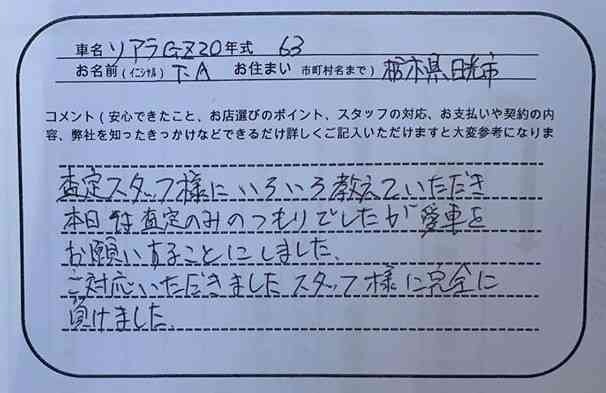 車名 ソアラGZ20年式 63
お名前(イニシャル) T.A お住まい 市町村名まで) 栃木県日光市
コメント(安心できたこと、お店選びのポイント、スタッフの対応、お支払いや契約の内
容、弊社を知ったきっかけなどできるだけ詳しくご記入いただけますと大変参考になりま
査定スタッフ様にいろいろ教えていただき
本日は査定のみのつもりでしたが愛車を
お願いすることにしました、
ご対応いただきましたスタッフ様に完全に
負けました、